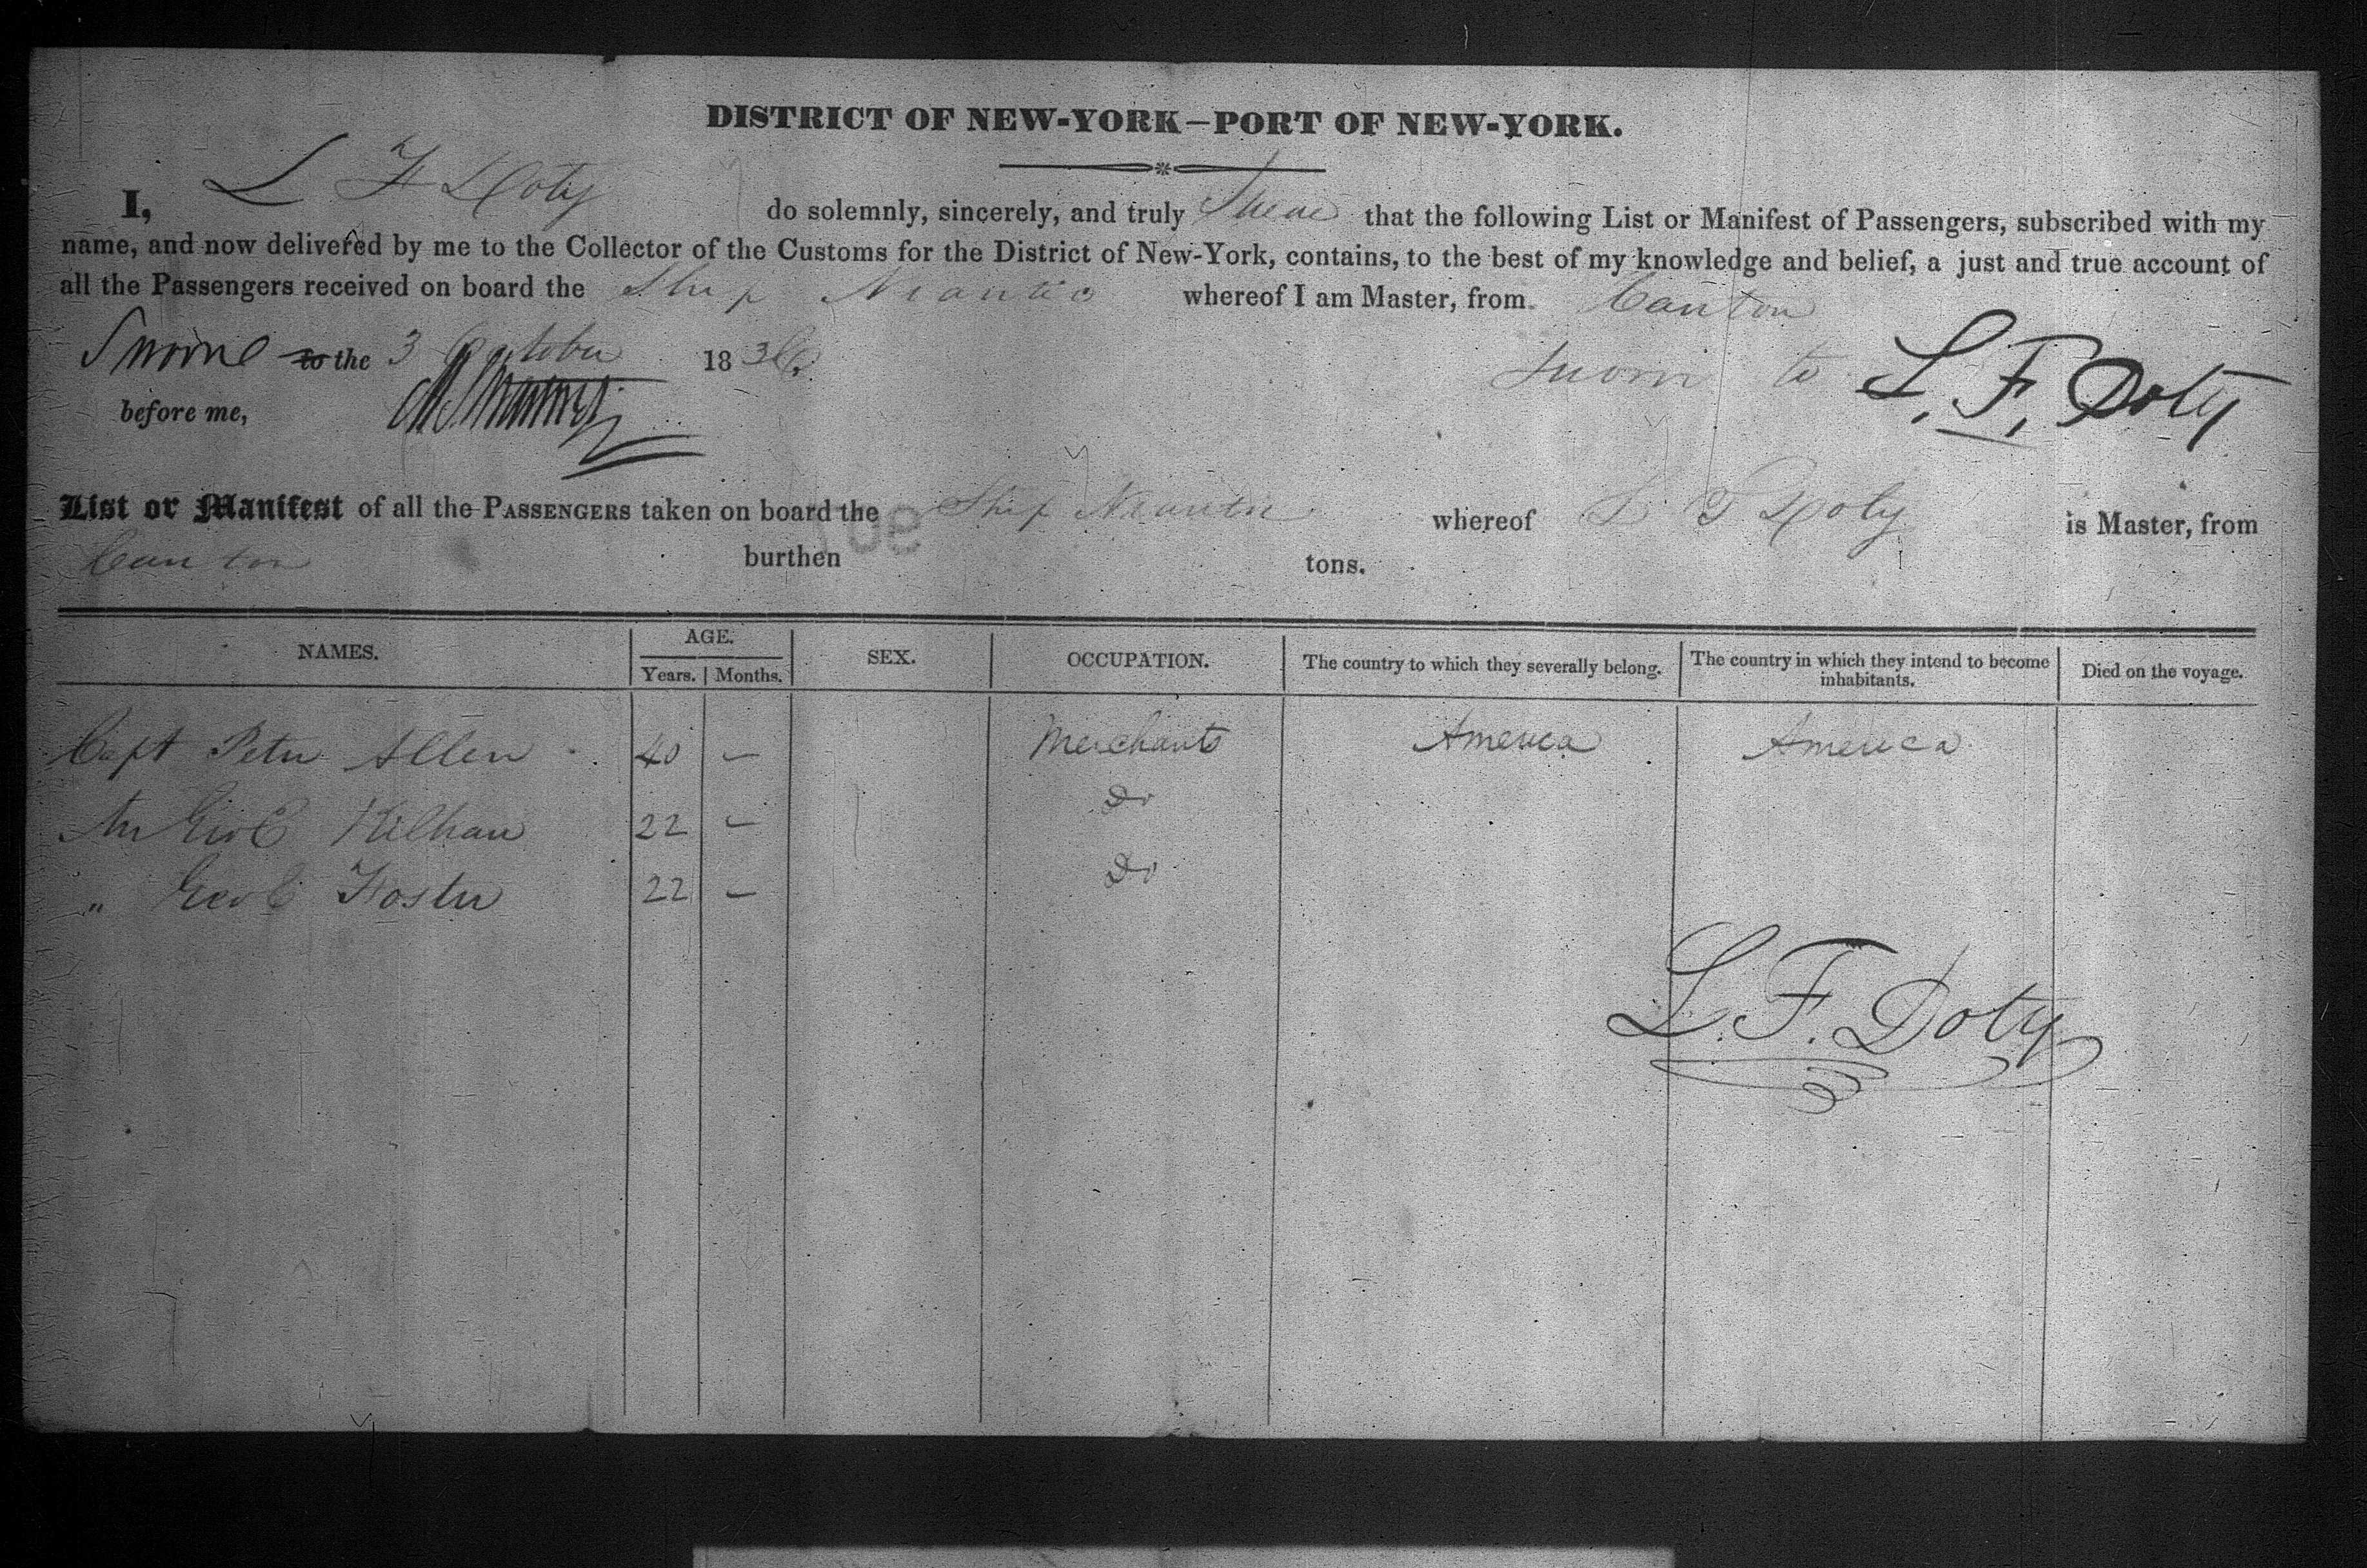 DISTRICT OF NEW-YORK—PORT OF NEW-YORK.
I, L F Doty do solemnly, sincerely, and truly Swear that the following List or Manifest of Passengers, subscribed with my
name, and now delivered by me to the Collector of the Customs for the District of New-York, contains, to the best of my knowledge and belief, a just and true account of
all the Passengers received on board the Ship Niantic whereof I am Master, from Canton
Sworne to the 3 October 1836 Sworn to L. F. Doty
before me,
List or Manifest of all the PASSENGERS taken on board the Ship Niantic whereof L F Doty is Master, from
Canton burthen tons.
NAMES. AGE. SEX. OCCUPATION. The country to which they severally belong. The country in which they intend to become inhabitants. Died on the voyage.
Years. Months.
Capt Peter Allen 40 — Merchants America America
Kilham 22 — Do
" Geo C Foster 22 — Do
L. F. Doty